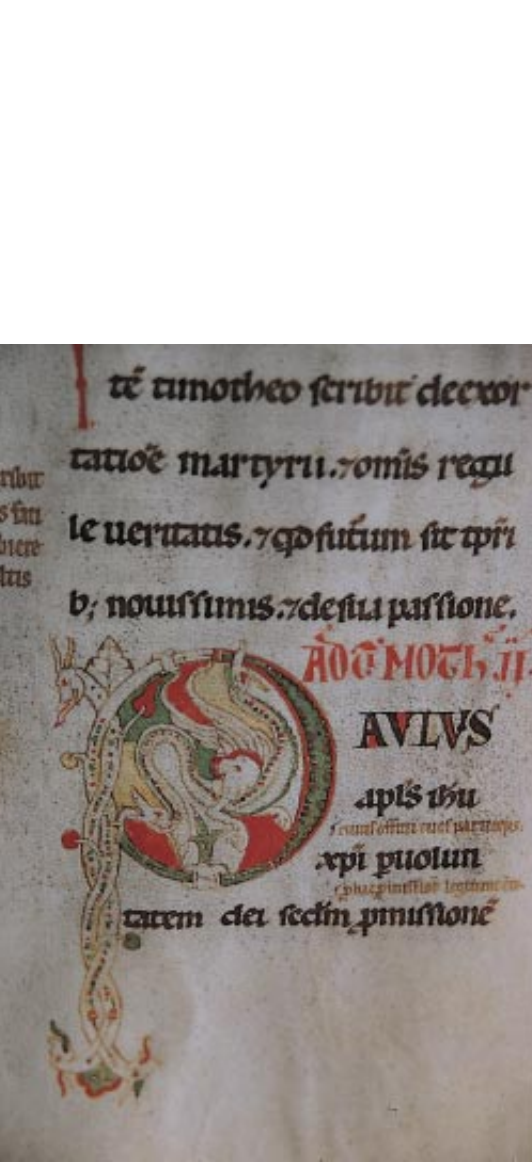 Itē timotheo scribit deexor
tatiōe martyrii.⁊omīs regu
le ueritatis.⁊qđ futūm sit tp̄ri
b; nouissimis.⁊desua passione.
AD TIMOTH. II.
PAVLVS
apl̄s ih̄u
xp̄i ꝑuolun
tatem dei sec̄dm ꝓmissionē